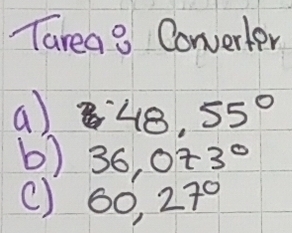 Tarea: Converter
a) 48,55°
b) 36,073°
c) 60,27°